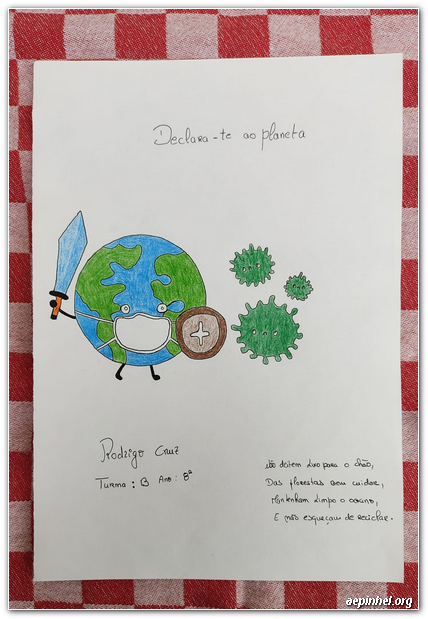 Declara-te ao planeta
Rodrigo Cruz
Turma : B Ano : 8º
Não deitem lixo para o chão,
Das florestas bem cuidar,
Mantenham limpo o oceano,
E não esqueçam de reciclar.
aepinhel.org